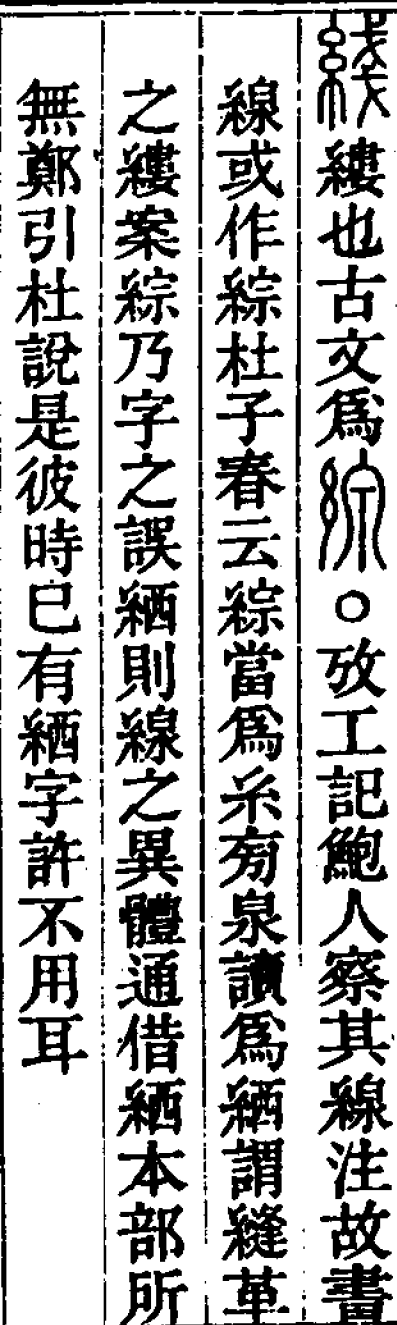 綫縷也古文爲線○攷工記鮑人察其線注故書
線或作綜杜子春云綜當爲糸旁泉讀爲絤謂縫革
之縷案綜乃字之誤絤則線之異體通借絤本部所
無鄭引杜說是彼時已有絤字許不用耳